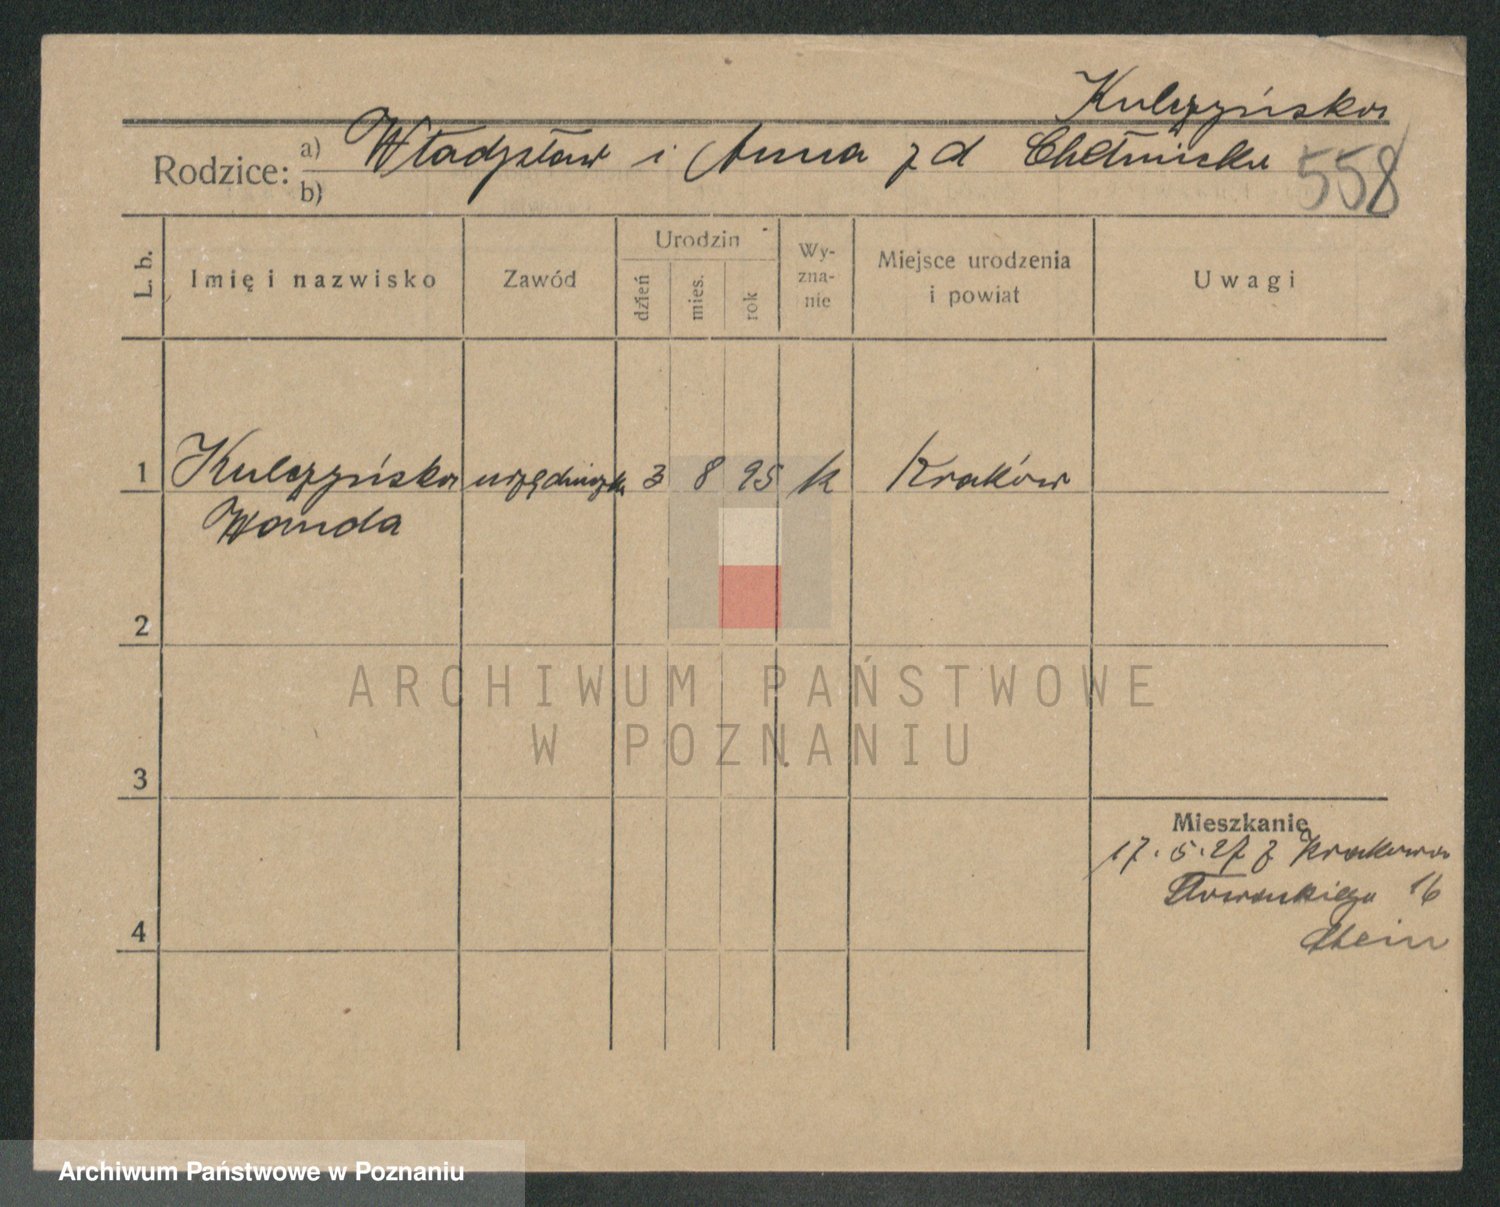 Kulczyńska
Rodzice: a) Władysław i Anna z d Chełmicka
b)
558
L. b.
Imię i nazwisko
Zawód
Urodzin
dzień
mies.
rok
Wy-
zna-
nie
Miejsce urodzenia
i powiat
Uwagi
1 Kulczyńska urzędniczk 3 8 95 k Kraków
Wanda
2
ARCHIWUM PAŃSTWOWE
W POZNANIU
3
Mieszkanie
17. 5. 27 z Krakowa
Słowackiego 16
4
Archiwum Państwowe w Poznaniu